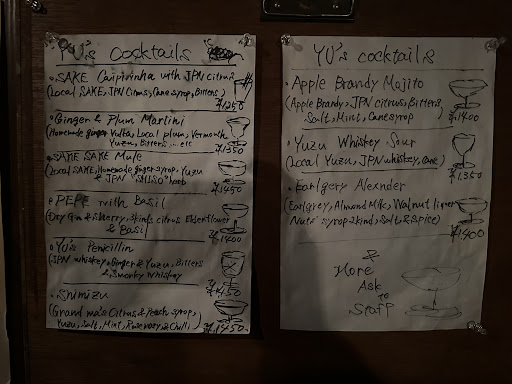 YU's Cocktails
• SAKE Caipirinha with JPN citrus
(Local SAKE, JPN Citrus, Cane syrop, Bitters)
¥1250
• Ginger & Plum Martini
(Homemade ginger Vodka, Local plum, Vermouth
Yuzu, Bitters ... etc
¥1350
• SAKE SAKE Mule
(Local SAKE, Homemade ginger syrop, Yuzu
& JPN "SHISO" herb
¥1450
• PEPE with BASIL
(Dry Gin & Sherry, 3kinds citrus Elderflower
& Basil)
¥1400
• YU's Penicillin
(JPN whiskey, Ginger & Yuzu, Bitters
& Smoky Whiskey
¥1450
• Shimizu
(Grand ma's Citrus & Peach syrop,
Yuzu, Salt, Mint, Rosemary & Chilli)
¥1450
YU's cocktails
• Apple Brandy Mojito
(Apple Brandy, JPN citrus, Bitters,
Salt, Mint, Cane syrop)
¥1400
• Yuzu Whiskey Sour
(Local Yuzu, JPN whiskey, Cane)
¥1350
• Earlgery Alexnder
(Earlgrey, Almond Milk, Walnut liquer
"Nuts" syrop 2kind, Salt & Spice)
¥1400
&
More
Ask
to
Staff